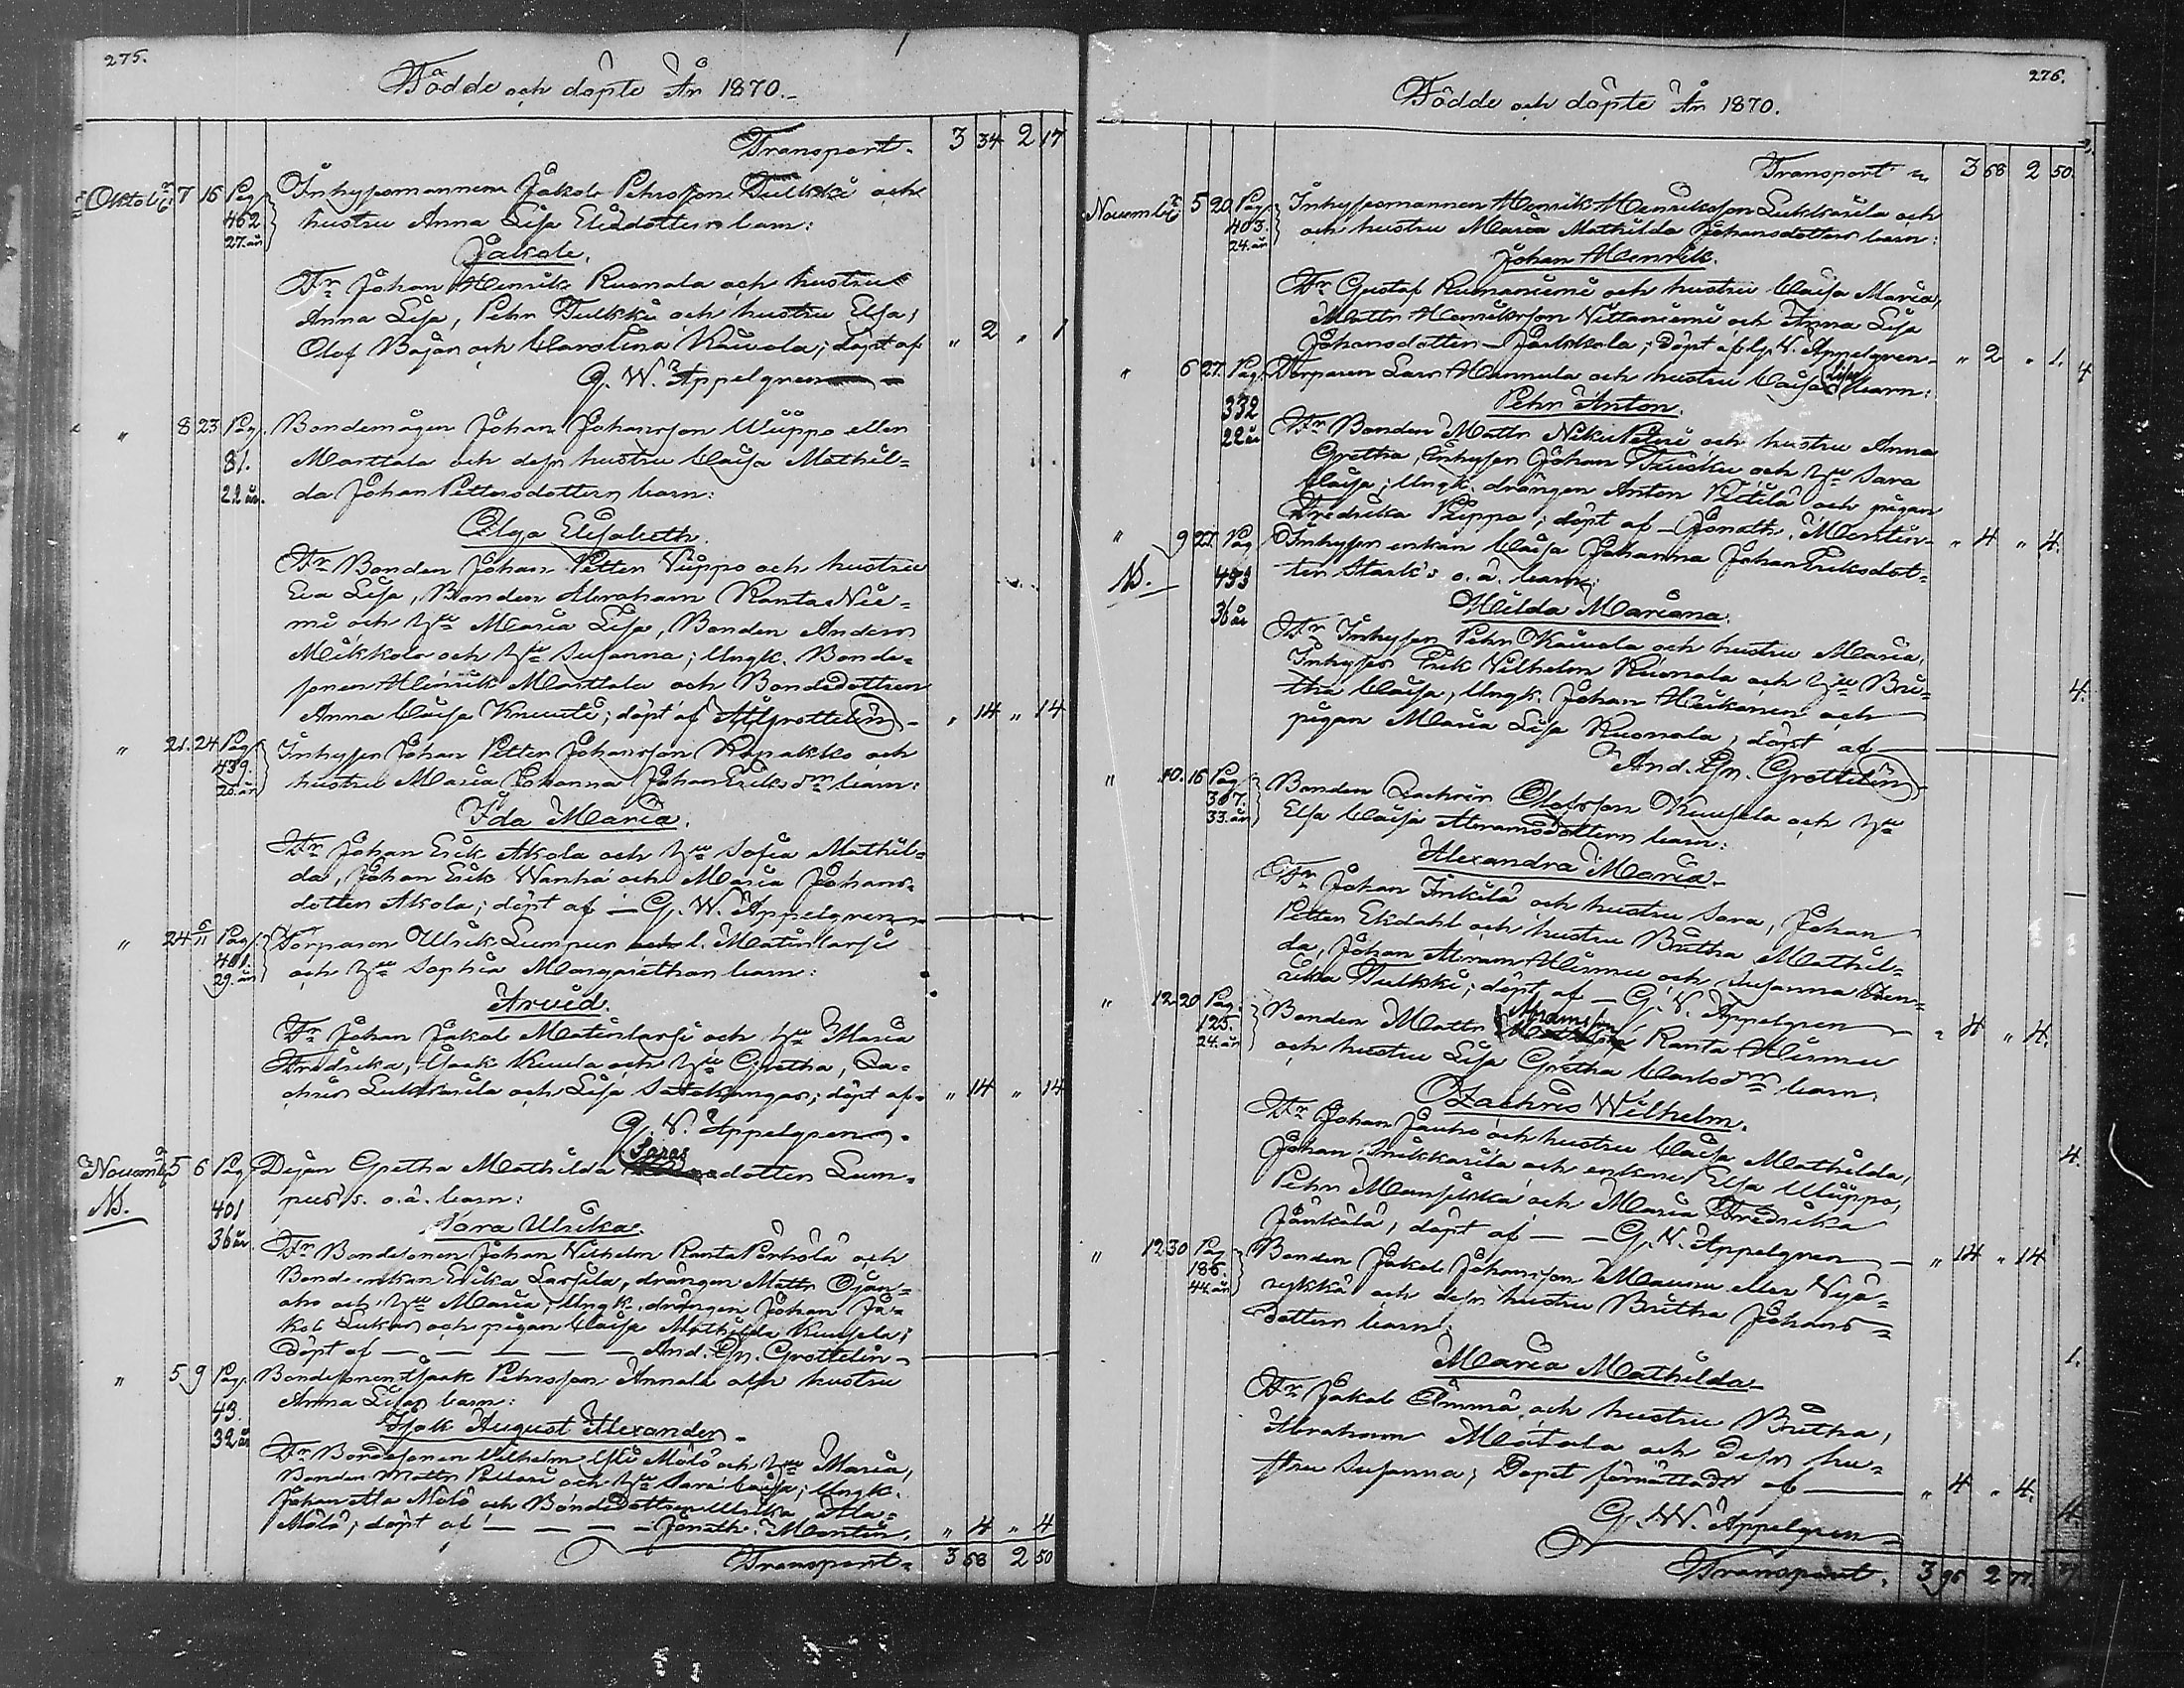 275.
Födde och döpte År 1870.
Transport. 3 34 2 17
Oktob. 7 16 Pag. Inhysesmannen Jakob Pehrsson Tulkki och
462 hustru Anna Lisa Eliædotters barn:
27. år
Jakob.
Fr. Johan Henrik Ruonala och hustru
Anna Lisa, Pehr Tulkki och hustru Elsa;
Olof Bojan och Carolina Kaivola; döpt af " 2 " 1
G. W. Appelgren
" 8 23 Pag. Bondemågen Johan Johansson Uuppo eller
81. Marttala och dess hustru Caisa Mathil-
22 år. da Johan Pettersdotters barn:
Olga Elisabeth.
Fr. Bonden Johan Petter Viippo och hustru
Eva Lisa, Bonden Abraham Ranta Nie-
mi och h:u Maria Lisa, Bonden Anders
Mikkola och h:u Susanna; Ungk. Bonde-
sonen Henrik Marttala och Bondedottren
Anna Caisa Knuuti; döpt af A. Grottelin " 14 " 14
" 21. 24 Pag. Inhysen Johan Petter Johansson Kopakko och
439. hustru Maria Johanna Johan Eriksdrs barn:
Ida Maria.
Fr. Johan Erik Akola och h:u Sofia Mathil-
da, Johan Erik Wanha och Maria Johans-
dotter Akola; döpt af G. W. Appelgren
" 24 6/11 Pag. Torparen Ulrik Lumpus och l. Matinlassi
401. och h:u Sophia Margarethas barn:
29. år
Arvid.
Fr. Johan Jakob Matinlassi och h:u Maria
Fredrika, Isaak Knuula och h:u Gretha, Za-
chris Lukkarila och Lisa Satokangas; döpt af " 14 " 14
G. W. Appelgren.
Novemb. 5 6 Pag. Pigan Gretha Mathilda Saras dotter Lum-
N. 401 pus's o. ä. barn:
36 år Nora Ulrika.
Fr. Bondesonen Johan Wilhelm Ranta Perhola och
Bondeenkan Erika Lassila, drängen Matts Ojan-
aho och h:u Maria; Ungk. drängen Johan Ja-
kob Lukas och pigan Caisa Mathilda Kuusela;
döpt af And. Gn. Grottelin
" 5 9 Pag. Bondesonen Isaak Pehrsson Annala och hustru
43. Anna Lisas barn:
32 år Isak August Alexander.
Fr. Bondesonen Wilhelm Yli Mölö och h:u Maria,
Bonden Matts Pallari och h:u Sara Caisa; Ungk.
Johan Ala Mölö och Bondedottren Ulrika Ala-
Mölö; döpt af Jonath. Montin. " 4 " 4
Transport. 3 68 2 50
276.
Födde och döpte År 1870.
Transport 3 68 2 50.
Novemb. 5 20 Pag. Inhysesmannen Henrik Henriksson Lukkarila och
403. och hustru Maria Mathilda Johansdotters barn:
24. år Johan Henrik.
Fr. Gustaf Ruonaniemi och hustru Caisa Maria,
Matts Henriksson Viitaniemi och Anna Lisa
Johansdotter Jaakkola; döpt af G. W. Appelgren " 2 " 1.
" 6 27. Pag. Torparen Lars Hannula och hustru Caisa Lisas barn:
332 Pehr Anton.
22 år Fr. Bonden Matts Niku Petteri och hustru Anna
Gretha, Inhysen Johan Tuisku och h:u Sara
Caisa; Ungk. drängen Anton Pietilä och pigan
Fredrika Viippo; döpt af Jonath. Montin " 4 " 4.
" 9 27. Pag. Inhyses enkan Caisa Johanna Johan Eriksdot-
N. 433 ter Stark's o. ä. barn:
36 år Hilda Mariana.
Fr. Inhysen Pehr Kaivola och hustru Maria,
Inhyses Erik Vilhelm Ruonala och h:u Bri-
tha Caisa; Ungk. Johan Heikkinen och
pigan Maria Lisa Ruonala; döpt af
And. Gn. Grottelin
" 10. 16 Pag. Bonden Zachris Olofsson Kuusela och h:u
307. Elsa Caisa Abramsdotters barn:
33. år
Alexandra Maria
Fr. Johan Inkilä och hustru Sara, Johan
Petter Ekdahl och hustru Britha Mathil-
da, Johan Abram Hirmu och Susanna Hen-
rika Tulkki; döpt af G. W. Appelgren " 4 " 4.
" 12. 20 Pag. Bonden Matts Abramsson Ranta Hirmu
125. och hustru Lisa Gretha Carlsdrs barn.
24. år
Zachris Wilhelm.
Fr. Johan Jauho och hustru Caisa Mathilda,
Johan Inkkarila och enkan Elsa Uuppo,
Pehr Mansikka och Maria Fredrika
Jänkälä, döpt af G. W. Appelgren " 14 " 14
" 12 30 Pag. Bonden Jakob Johansson Maunu eller Nyä-
186. rykkä och dess hustru Britha Johans-
44. år dotters barn:
Maria Mathilda
Fr. Jakob Ämmä och hustru Britha,
Abraham Matala och dess hu-
stru Susanna; Dopet förrättadt af " 4 " 4.
G. W. Appelgren
Transport. 3 96 2 77.